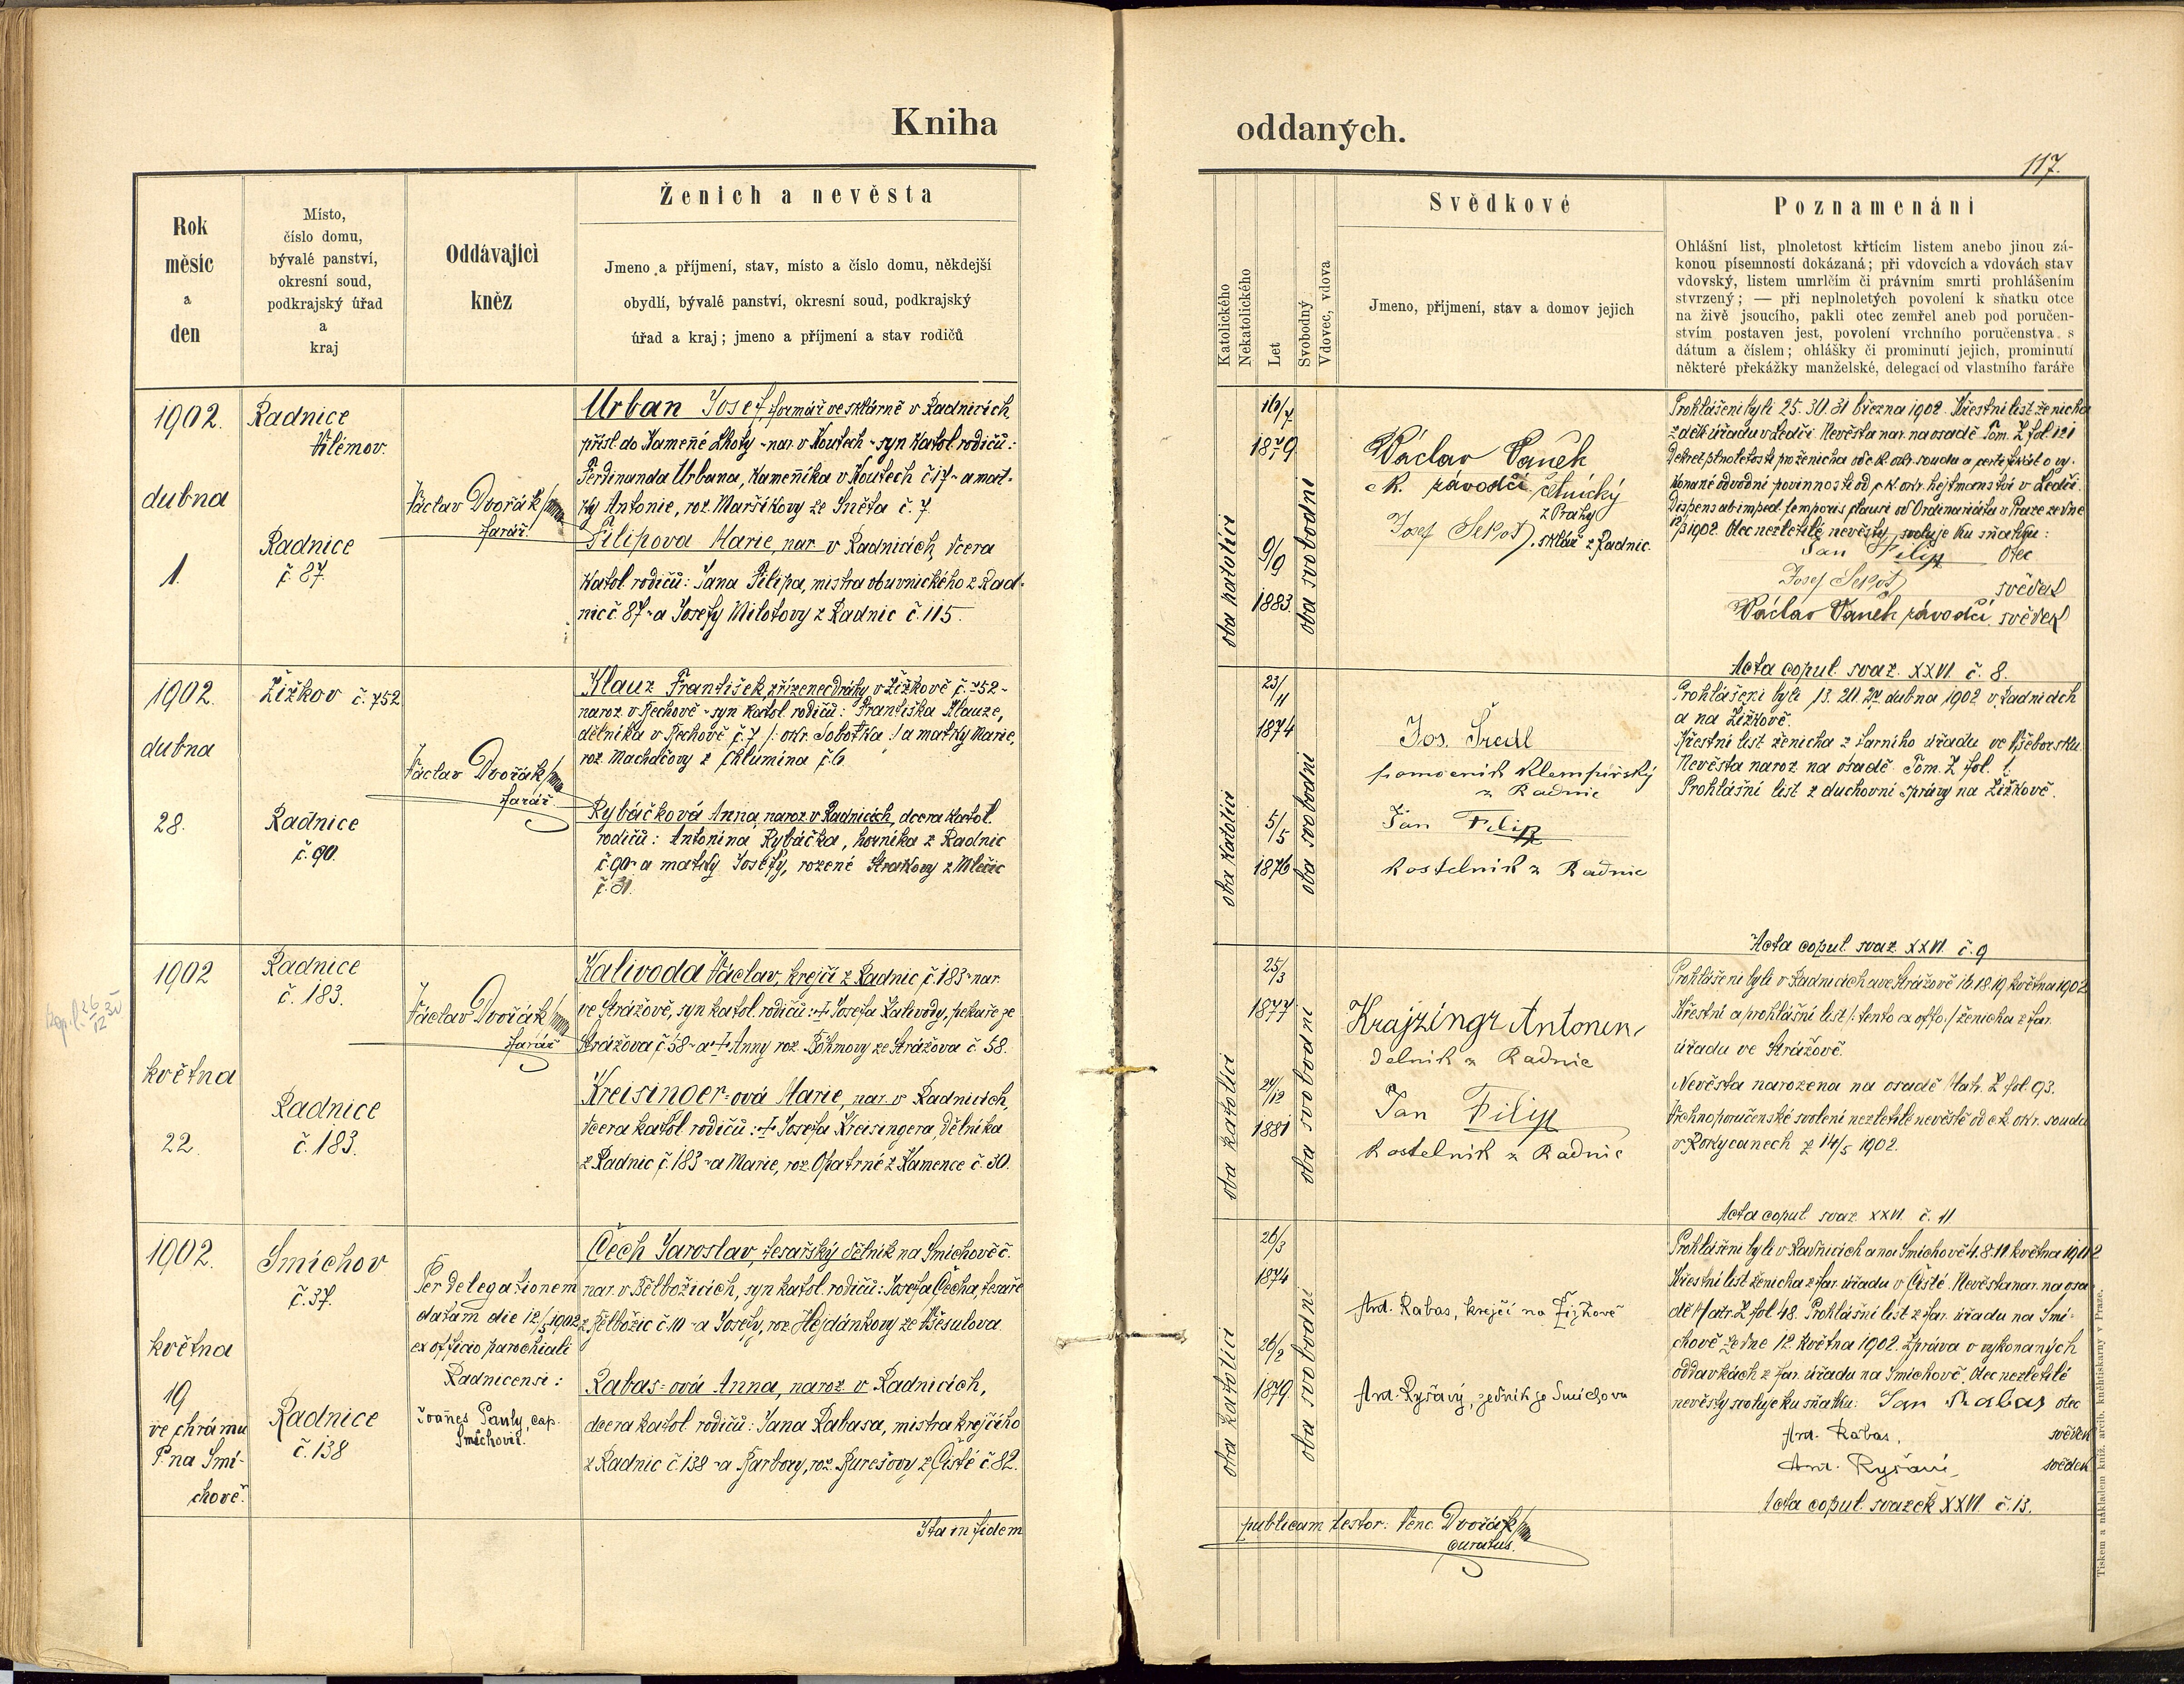 Kniha
oddaných.
117.
Rok
měsíc
a
den
Místo,
číslo domu,
bývalé panství,
okresní soud,
podkrajský úřad
a
kraj
Oddávající
kněz
Ženich a nevěsta
Jmeno a příjmení, stav, místo a číslo domu, někdejší
obydlí, bývalé panství, okresní soud, podkrajský
úřad a kraj; jmeno a příjmení a stav rodičů
Katolického
Nekatolického
Let
Svobodný
Vdovec, vdova
Svědkové
Jmeno, příjmení, stav a domov jejich
Poznamenání
Ohlášní list, plnoletost křtícím listem anebo jinou zá-
konou písemností dokázaná; při vdovcích a vdovách stav
vdovský, listem umrlčím či právním smrti prohlášením
stvrzený; — při neplnoletých povolení k sňatku otce
na živě jsoucího, pakli otec zemřel aneb pod poručen-
stvím postaven jest, povolení vrchního poručenstva s
dátum a číslem; ohlášky či prominutí jejich, prominutí
některé překážky manželské, delegací od vlastního faráře
1902.
dubna
1.
Radnice
Vilémov.
Radnice
č. 87.
Václav Dvořák
farář.
Urban Josef, formář ve sklárně v Radnicích
přísl. do Kamené Lhoty - nar. v Koutech - syn katol. rodičů:
Ferdinanda Urbana, kameníka v Koutech č. 17 - a mat-
ky Antonie, roz. Maršíkovy ze Sněťa č. 7
Filipova Marie, nar. v Radnicích, dcera
katol. rodičů: Jana Filipa, mistra obuvnického z Rad-
nic č. 87 - a Josefy Milotovy z Radnic č. 115.
oba katolíci
16/7
1879.
9/9
1883.
oba svobodni
Václav Vaněk
c. k. závodčí četnický
z Prahy
Josef Sekot, sklář z Radnic.
Prohlášeni byli 25. 30. 31 března 1902. Křestní list ženicha
z děk. úřadu v Ledči. Nevěsta nar. na osadě Tom. Z fol. 121
Dekret plnoletosti pro ženicha od c. k. okr. soudu a certifikát o vy-
konané odvodní povinnosti od c. k. okr. hejtmanství v Ledči.
Dispens ab imped. temporis clausi od Ordinariátu v Praze ze dne
1902. Otec nezletilé nevěsty svoluje ku sňatku:
Jan Filip otec
Josef Sekot svědek
Václav Vaněk závodčí svědek
Acta copul. svaz. XXVI č. 8.
1902.
dubna
28.
Žižkov č. 752
Radnice
č. 90.
Václav Dvořák
farář.
Klauz František, zřízenec dráhy v Žižkově č. 752 -
naroz. v Řechově - syn katol. rodičů: Františka Klauze,
dělníka v Řechově č. 7 /: okr. Sobotka :/ a matky Marie,
roz. Machačovy z Chlumína č. 6
Rybáčková Anna, naroz. v Radnicích, dcera katol.
rodičů: Antonína Rybáčka, horníka z Radnic
č. 90 - a matky Josefy, rozené Strakovy z Mlečic
č. 31.
oba katolíci
23/11
1874
5/5
1876
oba svobodni
Jos. Šredl
pomocník klempířský
z Radnic
Jan Filip
kostelník z Radnic
Prohlášeni byli 13. 20. 27 dubna 1902 v Radnicích
a na Žižkově.
Křestní list ženicha z farního úřadu ve Všeborsku
Nevěsta naroz. na osadě Tom. Z fol. 1.
Prohlášní list z duchovní správy na Žižkově.
Acta copul. svaz. XXVI č. 9
1902
května
22.
Radnice
č. 183.
Radnice
č. 183.
Václav Dvořák
farář
Kalivoda Václav, krejčí z Radnic č. 183 - nar.
ve Strážově, syn katol. rodičů: + Josefa Kalivody, pekaře ze
Strážova č. 58 - a + Anny roz. Böhmovy ze Strážova č. 58.
Kreisinger-ová Marie, nar. v Radnicích,
dcera katol. rodičů: + Josefa Kreisingera, dělníka
z Radnic č. 183 - a Marie, roz. Opatrné z Kamence č. 30.
oba katolíci
25/3
1877
24/12
1881
oba svobodni
Krajzingr Antonín,
dělník z Radnic
Jan Filip
kostelník z Radnic
Prohlášeni byli v Radnicích a ve Strážově 16. 18. 19. května 1902
Křestní a prohlášní list /: tento ex offo. :/ ženicha z far.
úřadu ve Strážově.
Nevěsta narozena na osadě Matr. Z fol. 93.
Vrchnoporučenské svolení nezletilé nevěstě od c. k. okr. soudu
v Rokycanech z 14/5 1902.
Acta copul. svaz. XXVI. č. 11
1902.
května
19
ve chrámu
P. na Smí-
chově.
Smíchov
č. 37.
Radnice
č. 138
Per delegationem
datam die 12/5 1902
ex officio parochiali
Radnicensi:
Joañes Pauly, cap.
Smíchovii.
Čech Jaroslav, tesařský dělník na Smíchově č.
nar. v Bělbožicích, syn katol. rodičů: Josefa Čecha, tesaře
z Bělbožic č. 10 - a Josefy, roz. Hejdánkovy ze Všesulova.
Rabas-ová Anna, naroz. v Radnicích,
dcera katol. rodičů: Jana Rabasa, mistra krejčího
z Radnic č. 138 - a Barbory, roz. Burešovy z Čisté č. 82.
oba katolíci
26/3
1874
26/2
1879.
oba svobodni
Ant. Rabas, krejčí na Žižkově
Ant. Ryšavý, zedník ze Smíchova
Prohlášeni byli v Radnicích a na Smíchově 4. 8. 11 května 1902
Křestní list ženicha z far. úřadu v Čisté. Nevěsta nar. na osa-
dě Matr. Z fol. 48. Prohlášní list z far. úřadu na Smí-
chově ze dne 12. května 1902. Zpráva o vykonaných
oddavkách z far. úřadu na Smíchově. Otec nezletilé
nevěsty svoluje ku sňatku: Jan Rabas otec
Ant. Rabas, svědek
Ant. Ryšavý, svědek
Acta copul. svazek XXVI č. 13.
Ita in fidem
publicam testor: Venc. Dvořák
curatus.
Tiskem a nákladem kníž. arcib. knihtiskárny v Praze.